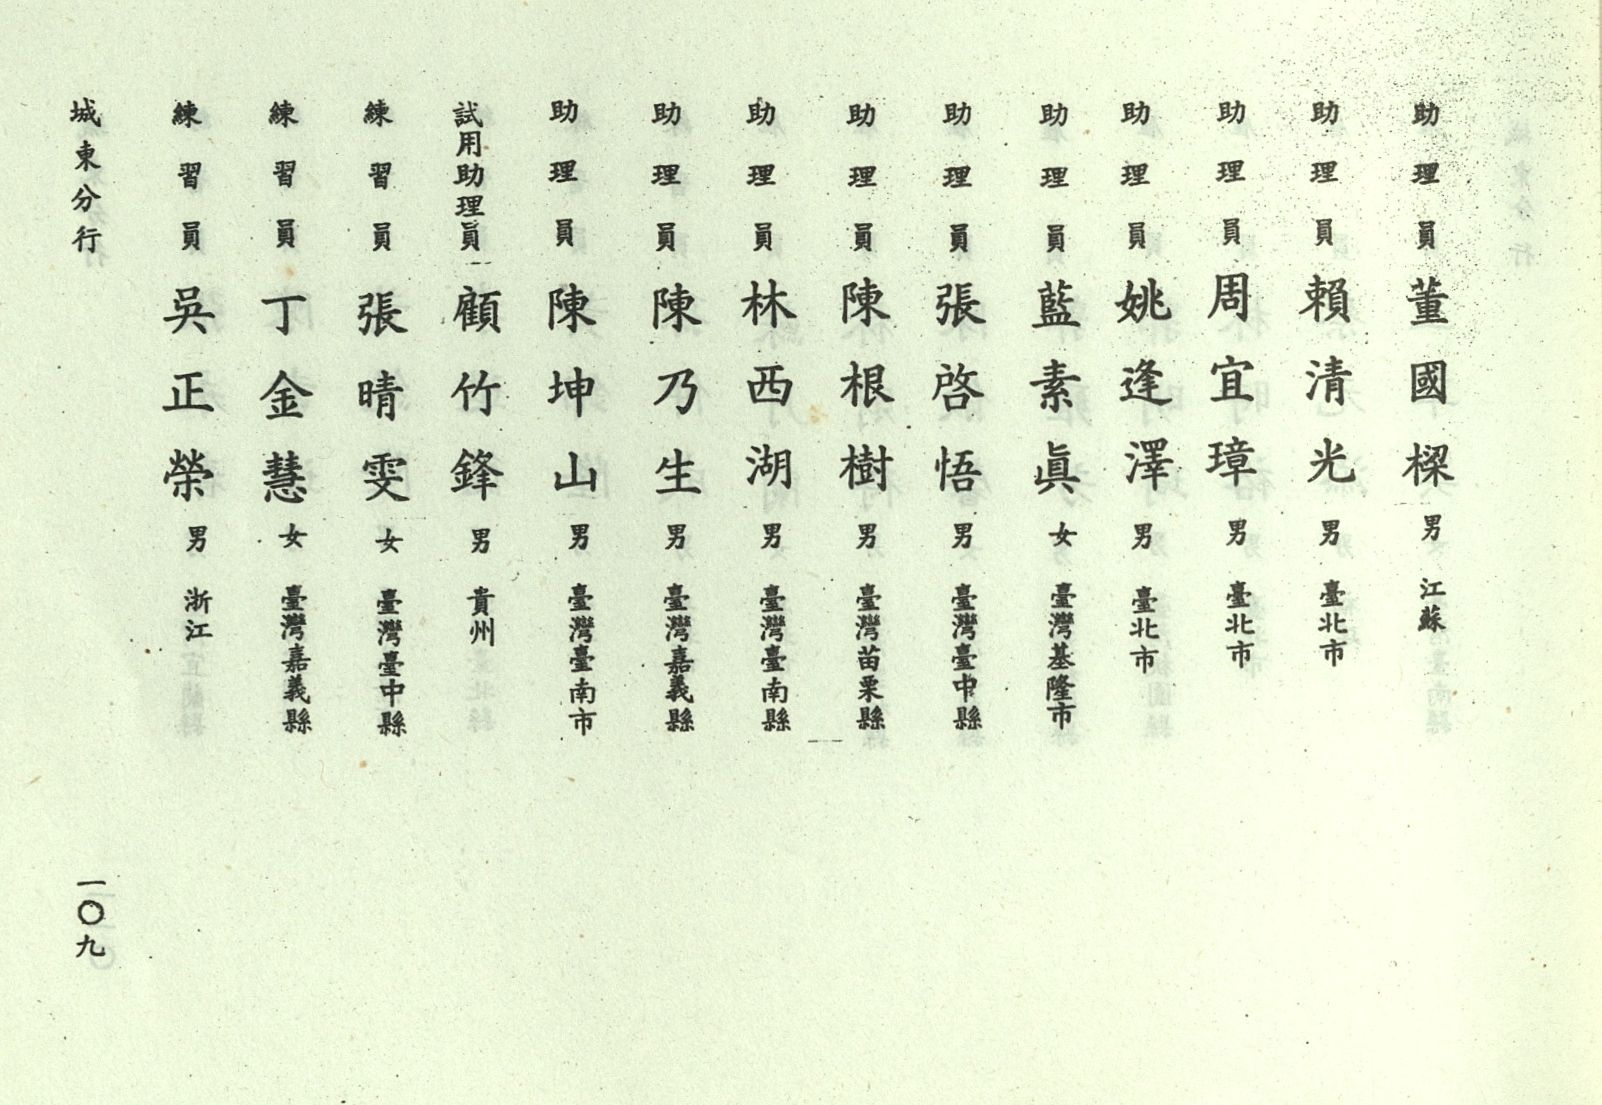 助理員 董國樑 男 江蘇
助理員 賴清光 男 臺北市
助理員 周宜璋 男 臺北市
助理員 姚逢澤 男 臺北市
助理員 藍素眞 女 臺灣基隆市
助理員 張啓悟 男 臺灣臺中縣
助理員 陳根樹 男 臺灣苗栗縣
助理員 林西湖 男 臺灣臺南縣
助理員 陳乃生 男 臺灣嘉義縣
助理員 陳坤山 男 臺灣臺南市
試用助理員 顧竹鋒 男 貴州
練習員 張晴雯 女 臺灣臺中縣
練習員 丁金慧 女 臺灣嘉義縣
練習員 吳正榮 男 浙江
城東分行
一〇九